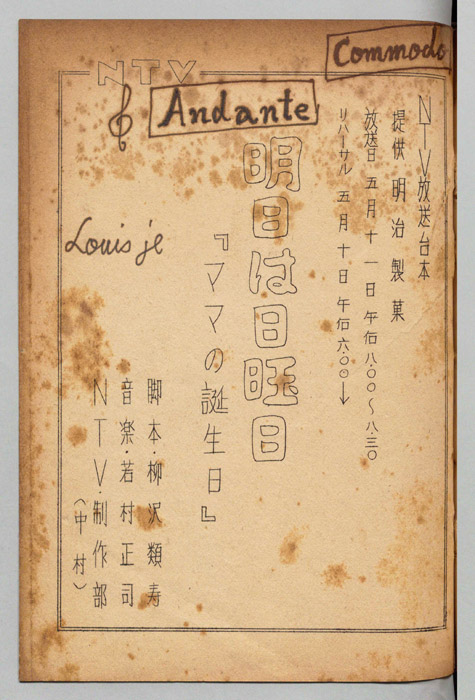 Commodo
NTV
Andante
Louis je
NTV放送台本
提供 明治製菓
放送日 五月十一日 午后八.〇〇〜八.三〇
リハーサル 五月十日 午后六.〇〇→
明日は日旺日
『ママの誕生日』
脚本・柳沢類寿
音楽・若村正司
NTV・制作部
(中村)